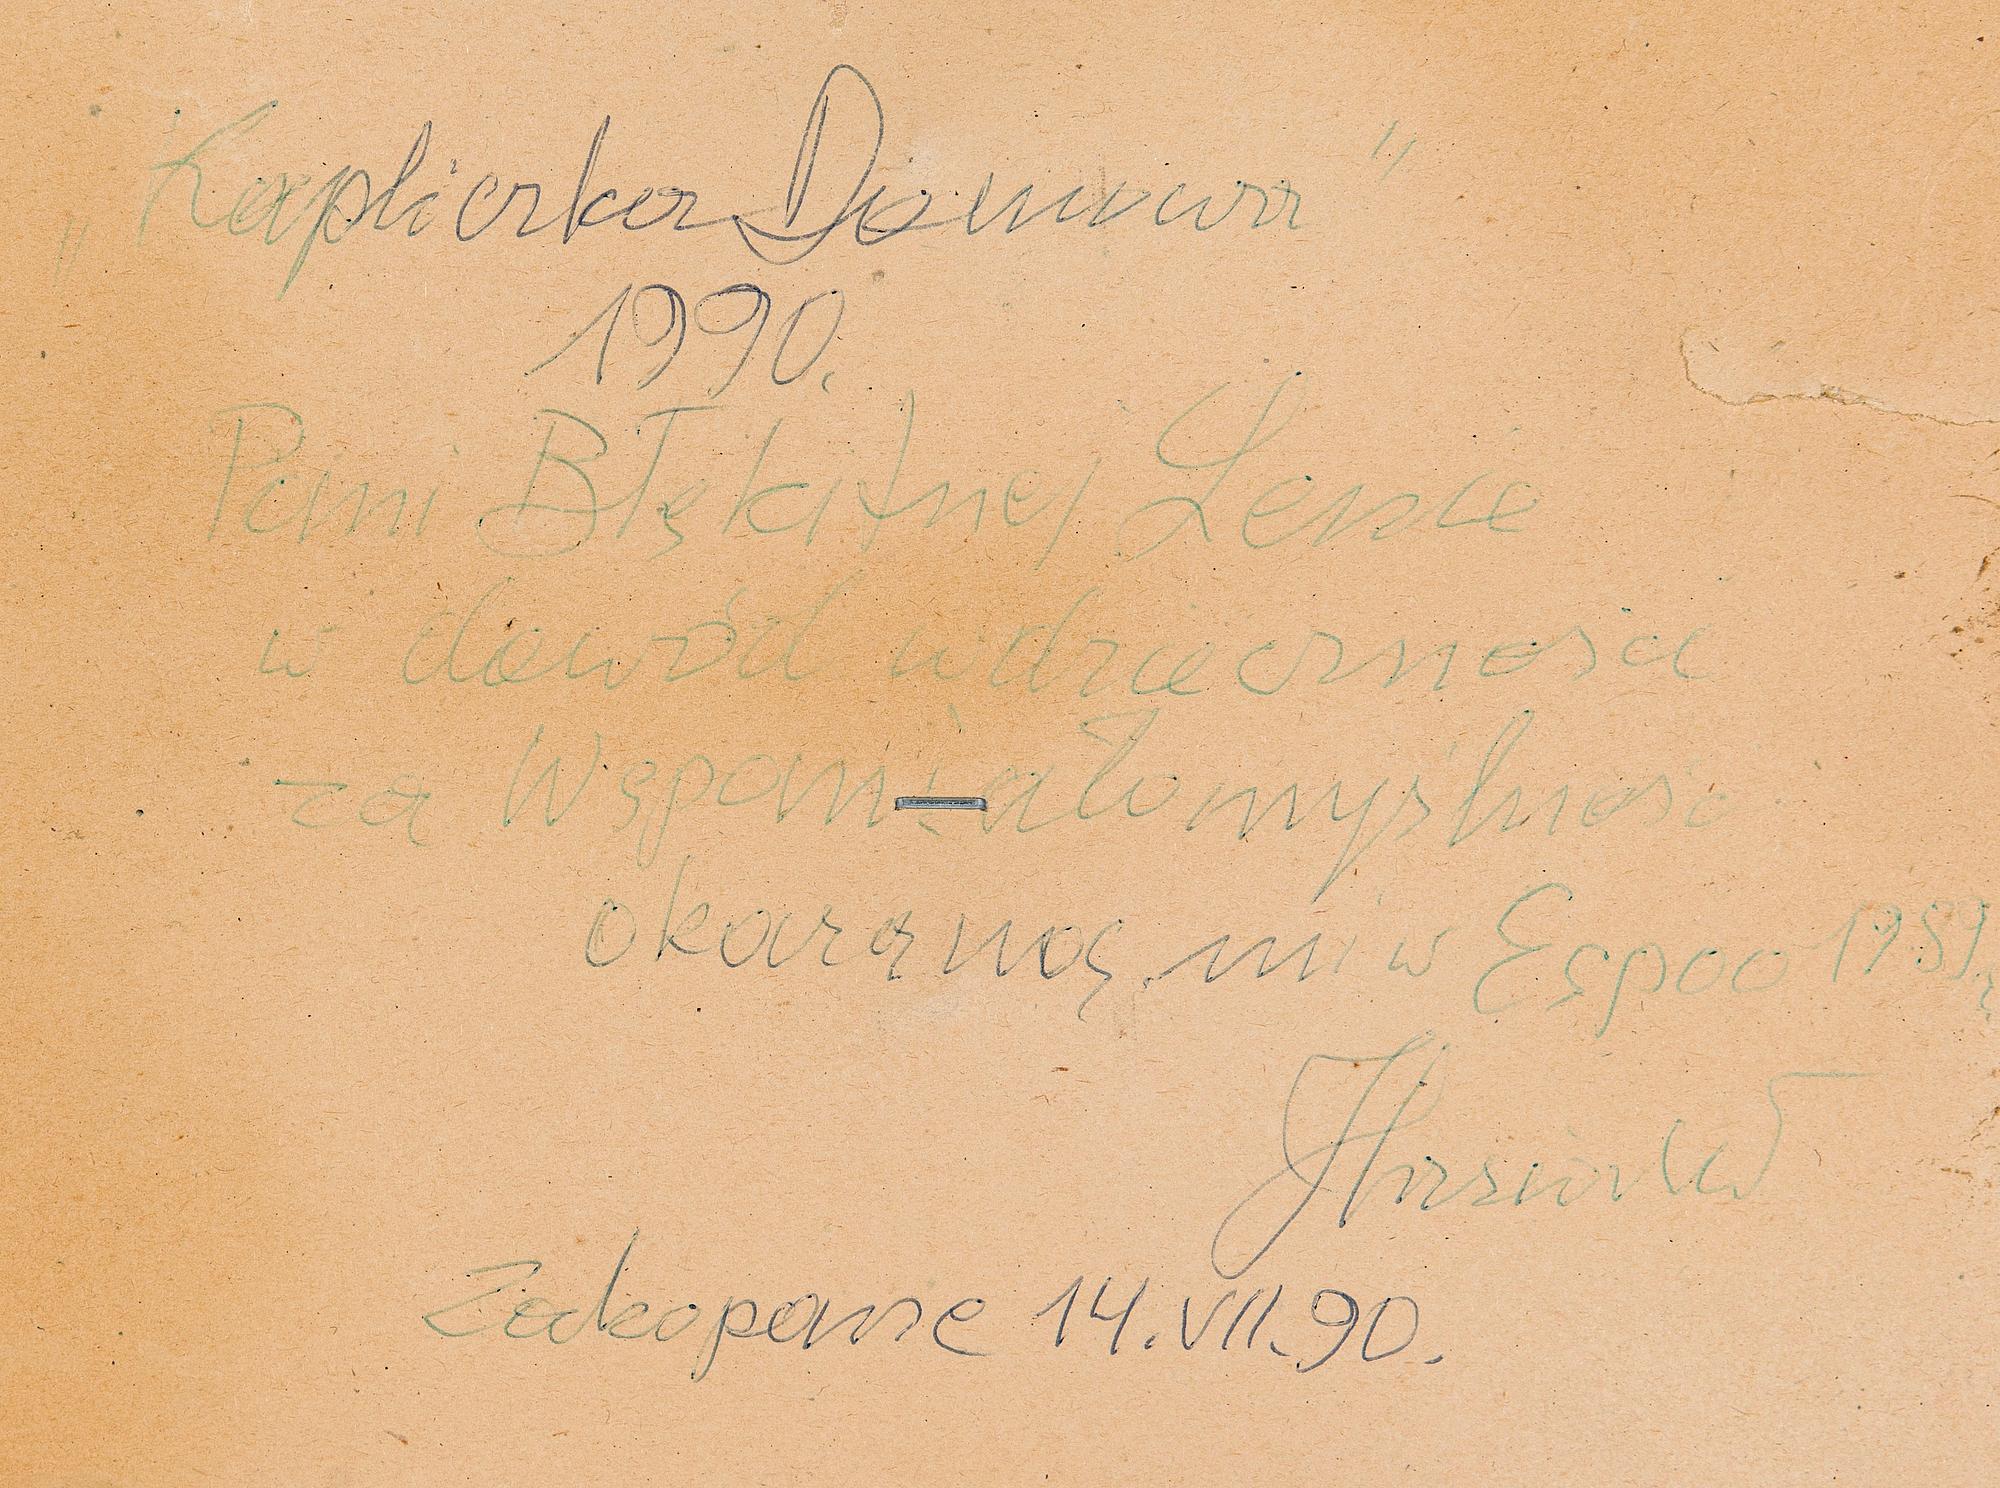 „Kapliczka Domowa"
1990.
Pani Błękitnej Lenie
w dowód wdzięczności
za Wspaniałomyślność
okazaną mi w Espoo 1989r
JHasior
Zakopane 14.VII.90.